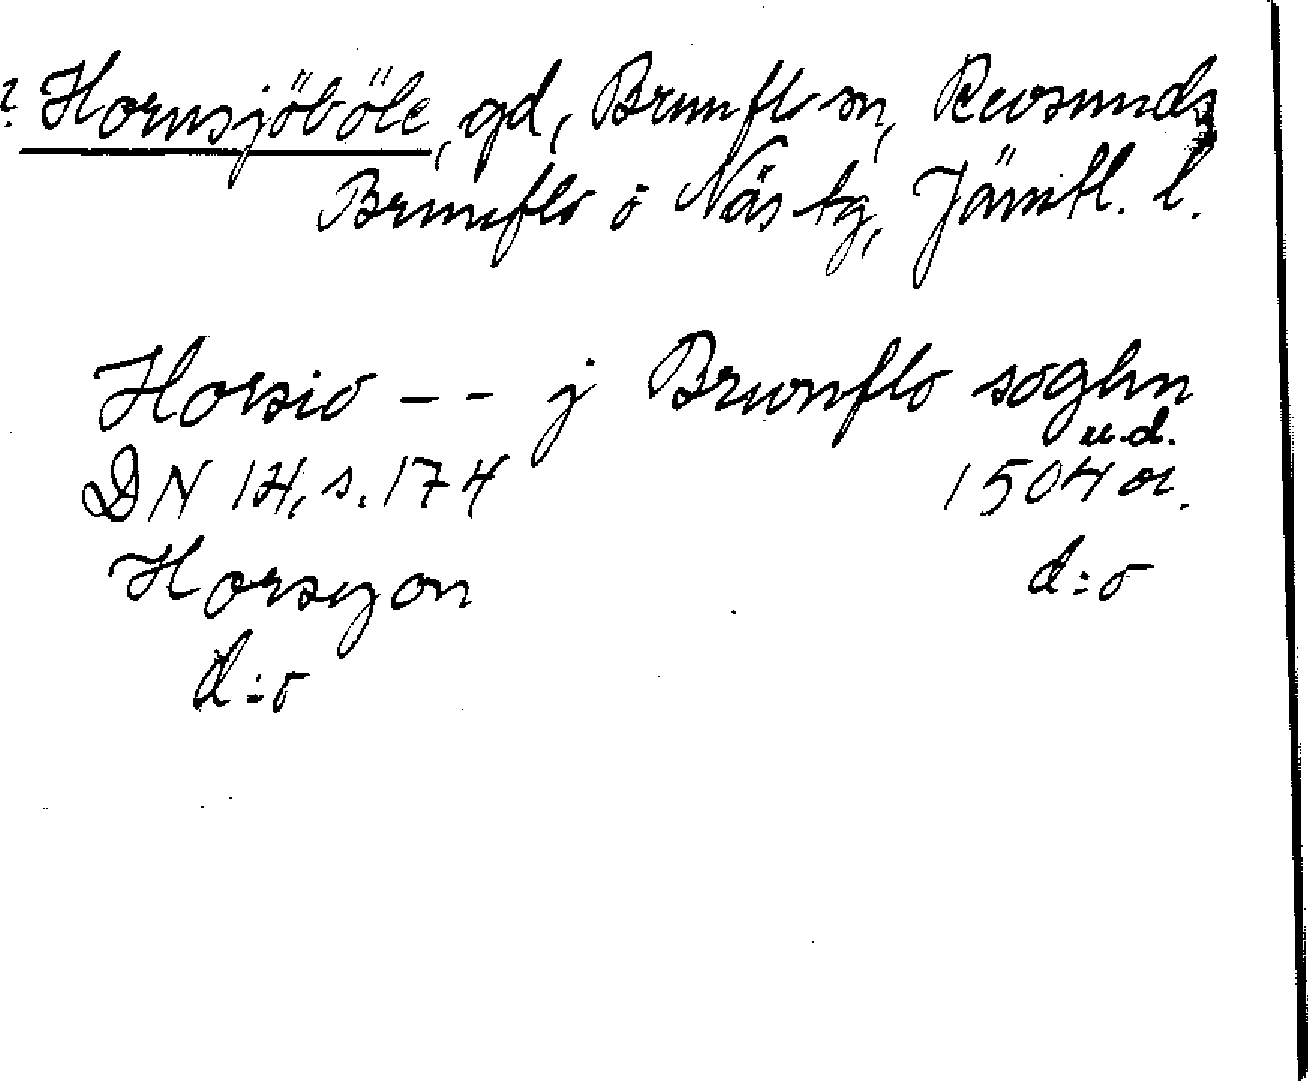 ? Hornsjöböle, gd, Brunflo sn, Revsunds
Brunflo o Näs tg, Jämtl. l.
Horsio -- j Brwnflo soghn
u.d.
DN 14, s. 174 1504 or.
Horsyon d:o
d:o